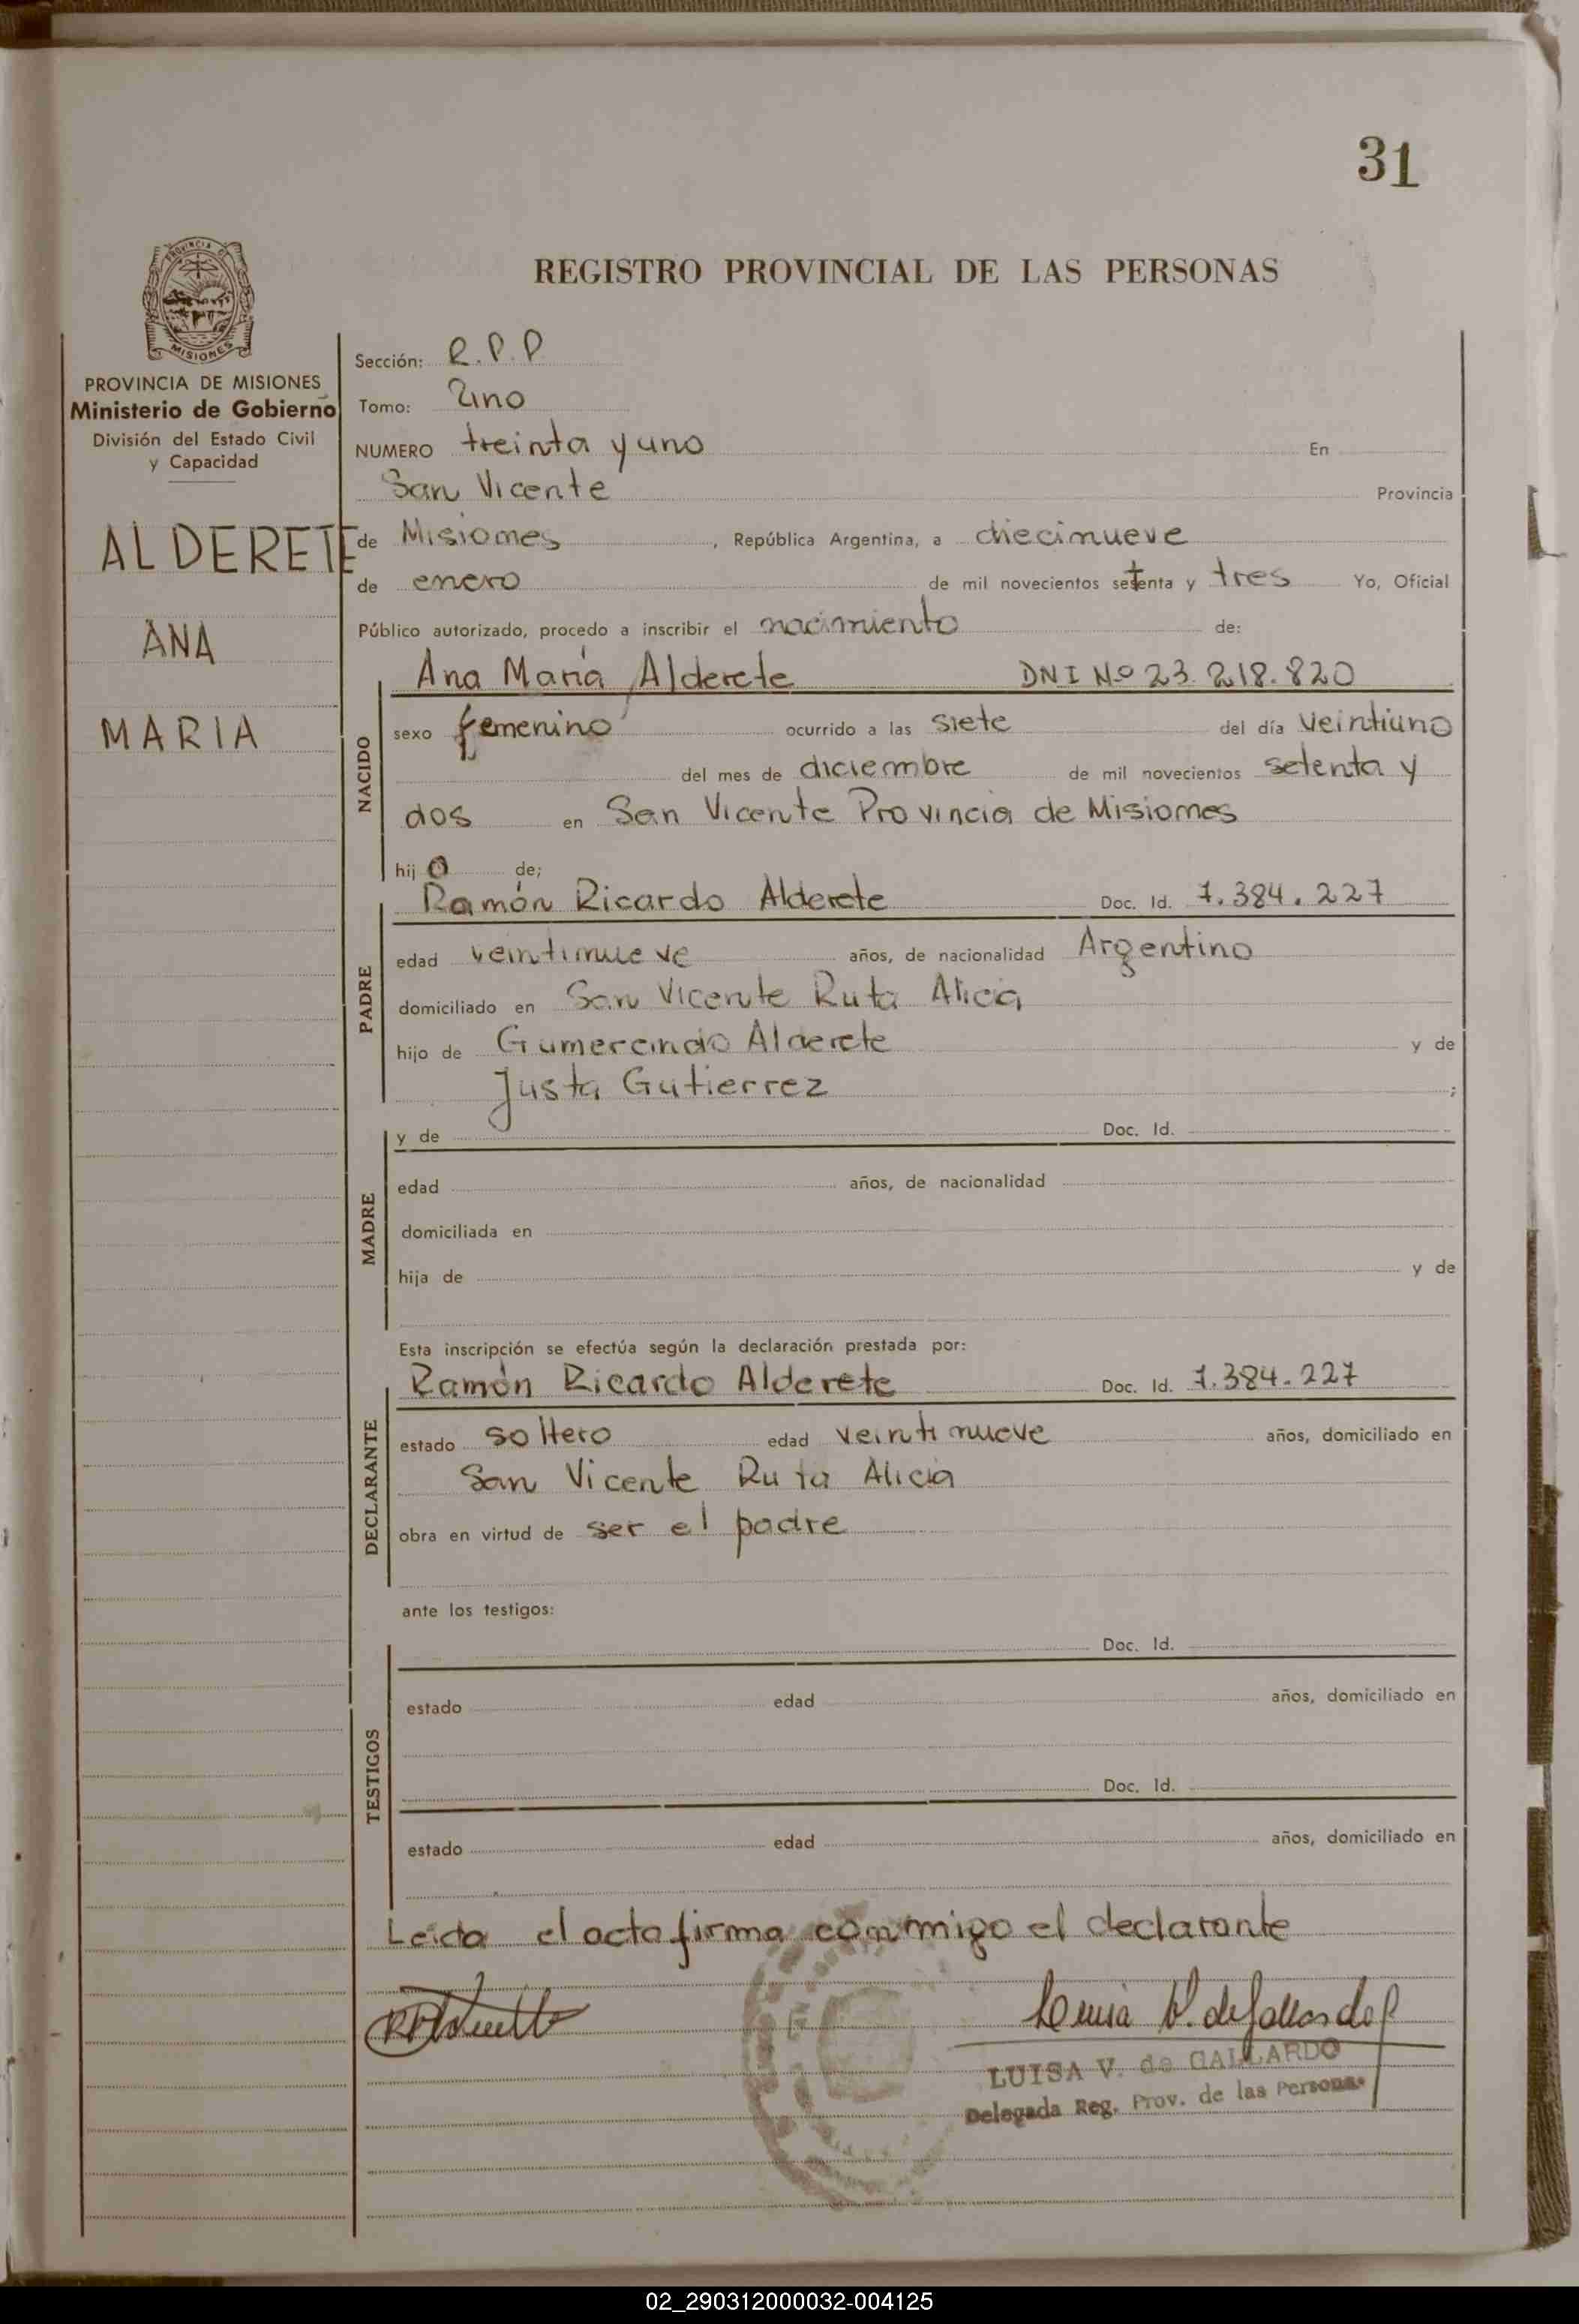 31
PROVINCIA DE
MISIONES
REGISTRO PROVINCIAL DE LAS PERSONAS
PROVINCIA DE MISIONES
Ministerio de Gobierno
División del Estado Civil
y Capacidad
ALDERETE
ANA
MARIA
Sección: R.P.P
Tomo: Uno
NUMERO treinta y uno En
San Vicente Provincia
de Misiones, República Argentina, a diecinueve
de enero de mil novecientos setenta y tres Yo, Oficial
Público autorizado, procedo a inscribir el nacimiento de:
Ana María Alderete DNI Nº 23.218.820
NACIDO
sexo femenino ocurrido a las siete del día veintiuno
del mes de diciembre de mil novecientos setenta y
dos en San Vicente Provincia de Misiones
hij o de;
PADRE
Ramón Ricardo Alderete Doc. Id. 7.384.227
edad veintinueve años, de nacionalidad Argentino
domiciliado en San Vicente Ruta Alicia
hijo de Gumercindo Alderete y de
Justa Gutierrez ;
MADRE
y de Doc. Id.
edad años, de nacionalidad
domiciliada en
hija de y de
Esta inscripción se efectúa según la declaración prestada por:
DECLARANTE
Ramón Ricardo Alderete Doc. Id. 7.384.227
estado soltero edad veintinueve años, domiciliado en
San Vicente Ruta Alicia
obra en virtud de ser el padre
ante los testigos:
TESTIGOS
Doc. Id.
estado edad años, domiciliado en
Doc. Id.
estado edad años, domiciliado en
Leida el acta firma conmigo el declarante
Luisa V. de Gallardo
LUISA V. de GALLARDO
Delegada Reg. Prov. de las Personas
02_290312000032-004125